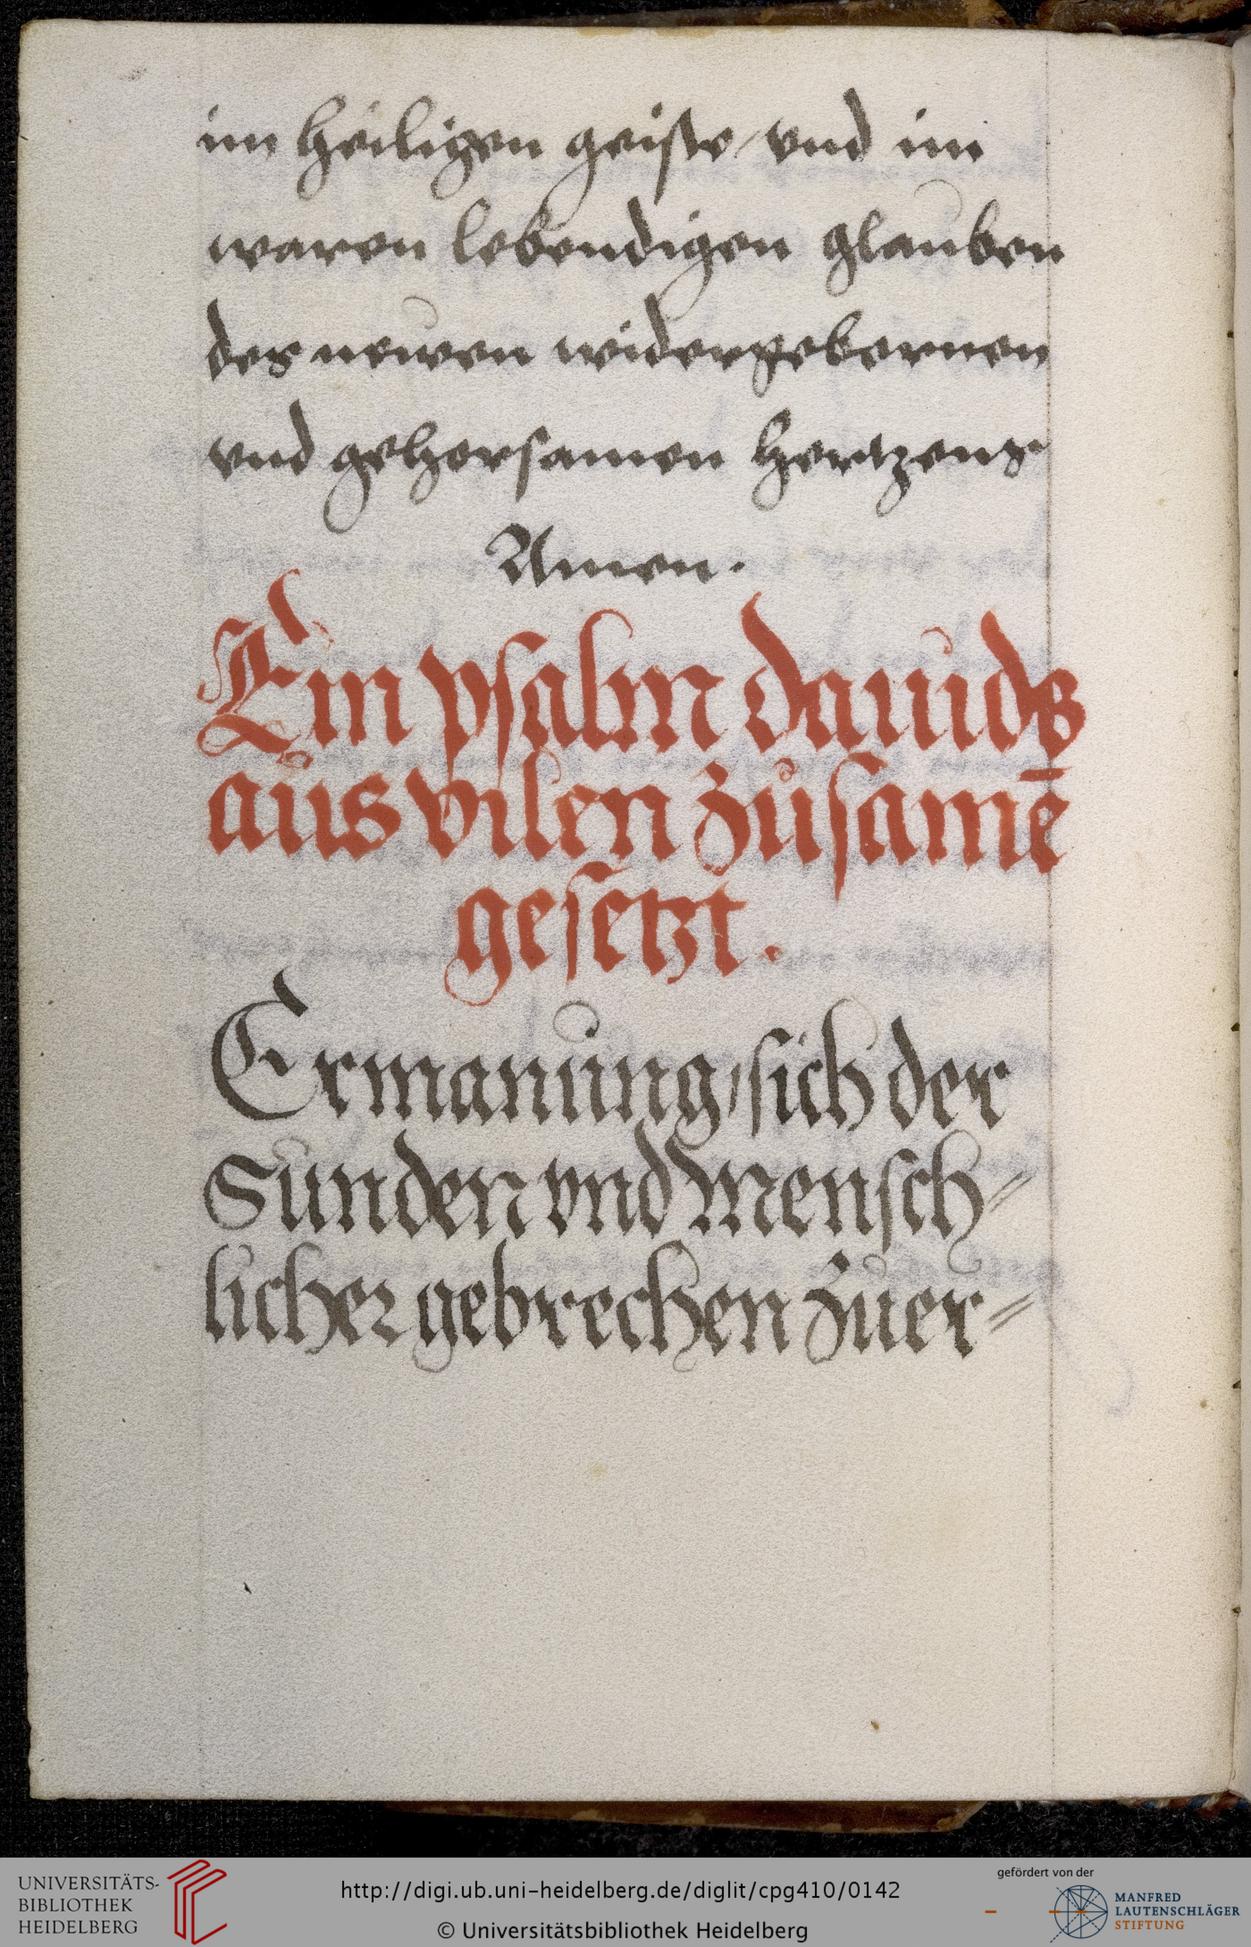 im heiligen geiste/ vnd im
waren lebendigen glauben
des newen widergebornen
vnd gehorsamen hertzens
Amen.
Ein psalm dauids
aus vilen zusamē
gesetzt.
Ermanung/ sich der
Sunden vnd Mensch=
licher gebrechen zuer=
UNIVERSITÄTS-
BIBLIOTHEK
HEIDELBERG
http://digi.ub.uni-heidelberg.de/diglit/cpg410/0142
© Universitätsbibliothek Heidelberg
gefördert von der
MANFRED
LAUTENSCHLÄGER
STIFTUNG